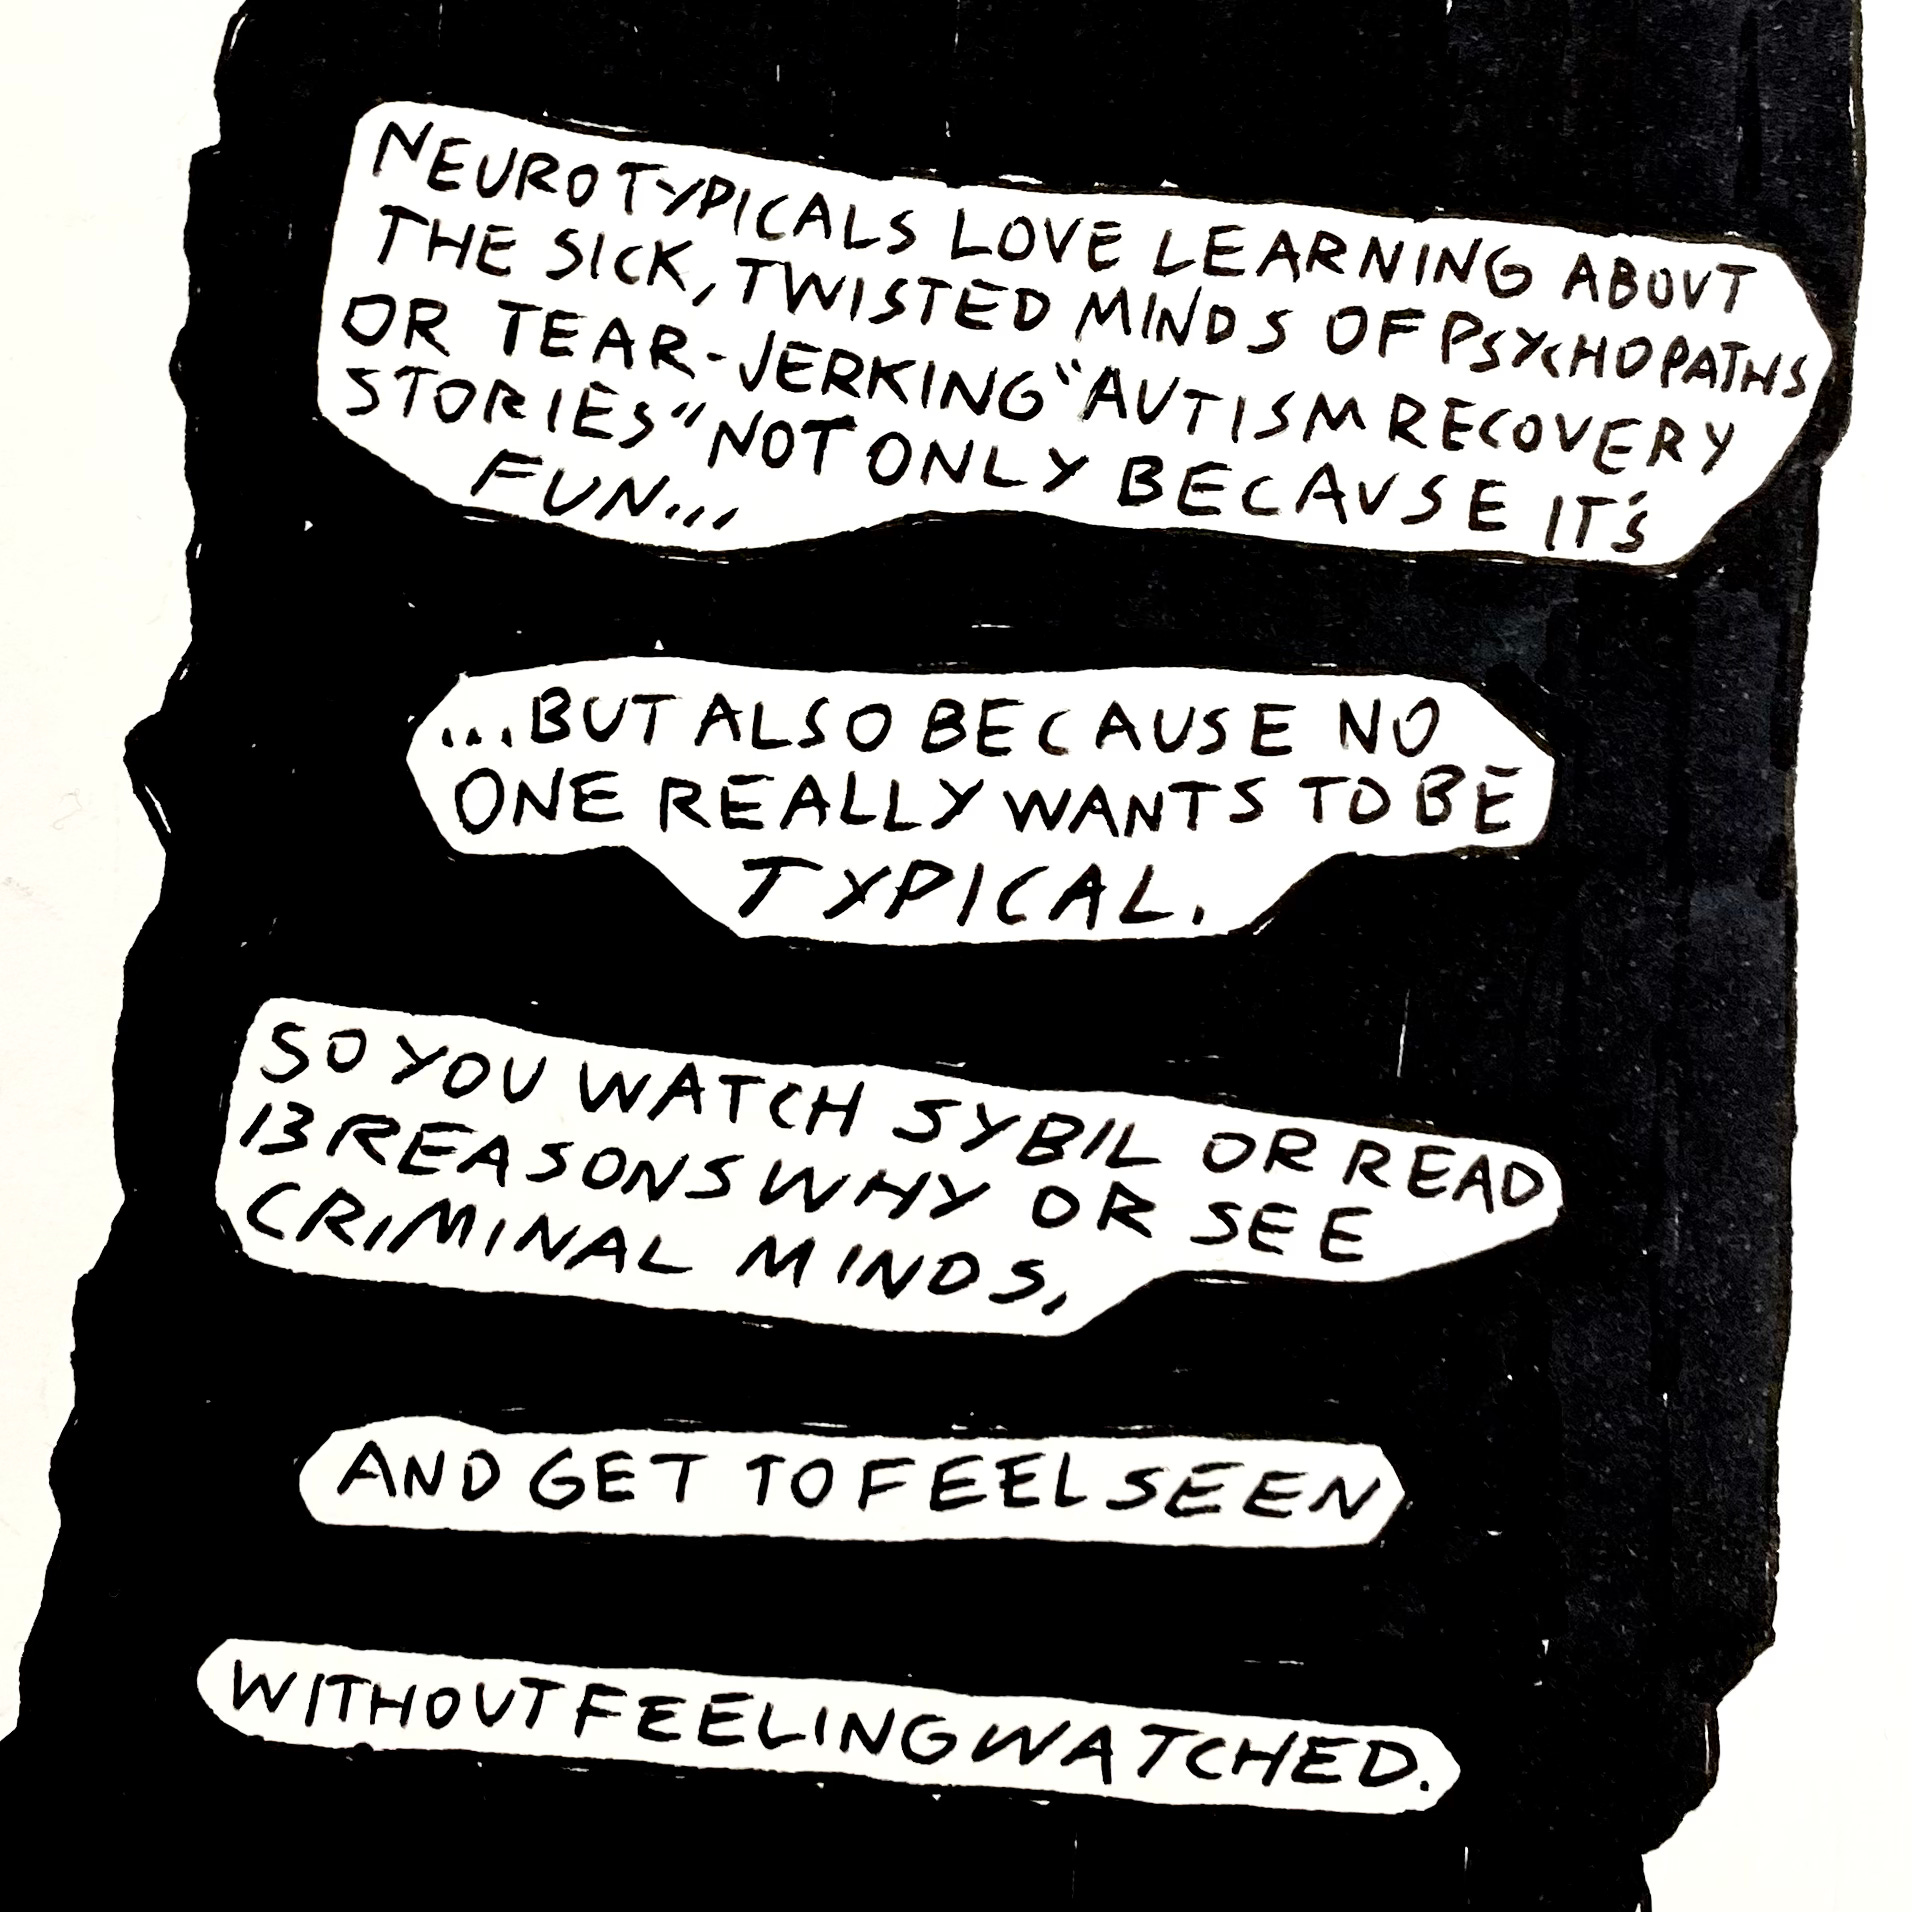 NEUROTYPICALS LOVE LEARNING ABOUT
THE SICK, TWISTED MINDS OF PSYCHOPATHS
OR TEAR-JERKING "AUTISM RECOVERY
STORIES" NOT ONLY BECAUSE IT'S
FUN...
...BUT ALSO BECAUSE NO
ONE REALLY WANTS TO BE
TYPICAL.
SO YOU WATCH SYBIL OR READ
13 REASONS WHY OR SEE
CRIMINAL MINDS,
AND GET TO FEEL SEEN
WITHOUT FEELING WATCHED.